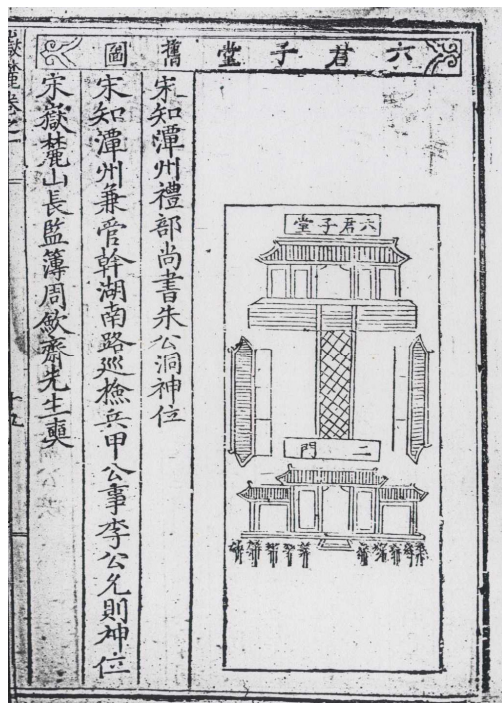 六君子堂舊圖
六君子堂
二門
宋知潭州禮部尚書朱公洞神位
宋知潭州兼管幹湖南路巡撿兵甲公事李公允則神位
宋嶽麓山長監簿周歛齋先生奭